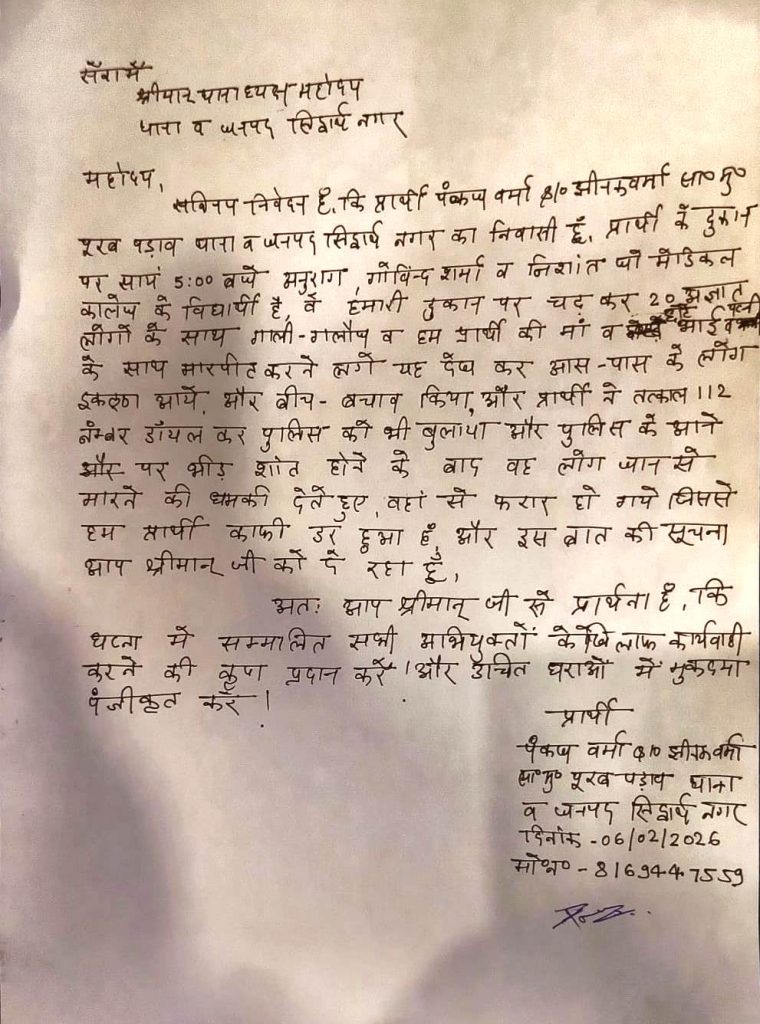 सेवामें
श्रीमान थानाध्यक्ष महोदय
थाना व जनपद सिद्धार्थ नगर
महोदय,
सविनय निवेदन है, कि प्रार्थी पंकज वर्मा S/O झीनक वर्मा सा०मु०
पूरब पड़ाव थाना व जनपद सिद्धार्थ नगर का निवासी हूँ, प्रार्थी के दुकान
पर सायं 5:00 बजे अनुराग, गोविन्द शर्मा व निशांत जो मेडिकल
कालेज के विद्यार्थी है, वे हमारी दुकान पर चढ़ कर 20 अज्ञात
लोगों के साथ गाली-गलौज व हम प्रार्थी की मां व भाई व पत्नी
के साथ मारपीट करने लगे यह देख कर आस-पास के लोग
इकठ्ठा आये, और बीच-बचाव किया, और प्रार्थी ने तत्काल 112
नंम्बर डॉयल कर पुलिस को भी बुलाया और पुलिस के आने
और पर भीड़ शांत होने के बाद वह लोग जान से
मारने की धमकी देते हुए, वहां से फरार हो गये जिससे
हम प्रार्थी काफी डरा हुआ है, और इस बात की सूचना
आप श्रीमान् जी को दे रहा हूँ,
अतः आप श्रीमान् जी से प्रार्थना है, कि
घटना में सम्मालित सभी अभियुक्तों के खिलाफ कार्यवाही
करने की कृपा प्रदान करें। और उचित धराओं में मुकदमा
पंजीकृत करें।
प्रार्थी
पंकज वर्मा S/O झीनक वर्मा
सा०मु० पूरब पड़ाव थाना
व जनपद सिद्धार्थ नगर
दिनांक - 06/02/2026
मो०न० - 8169447559